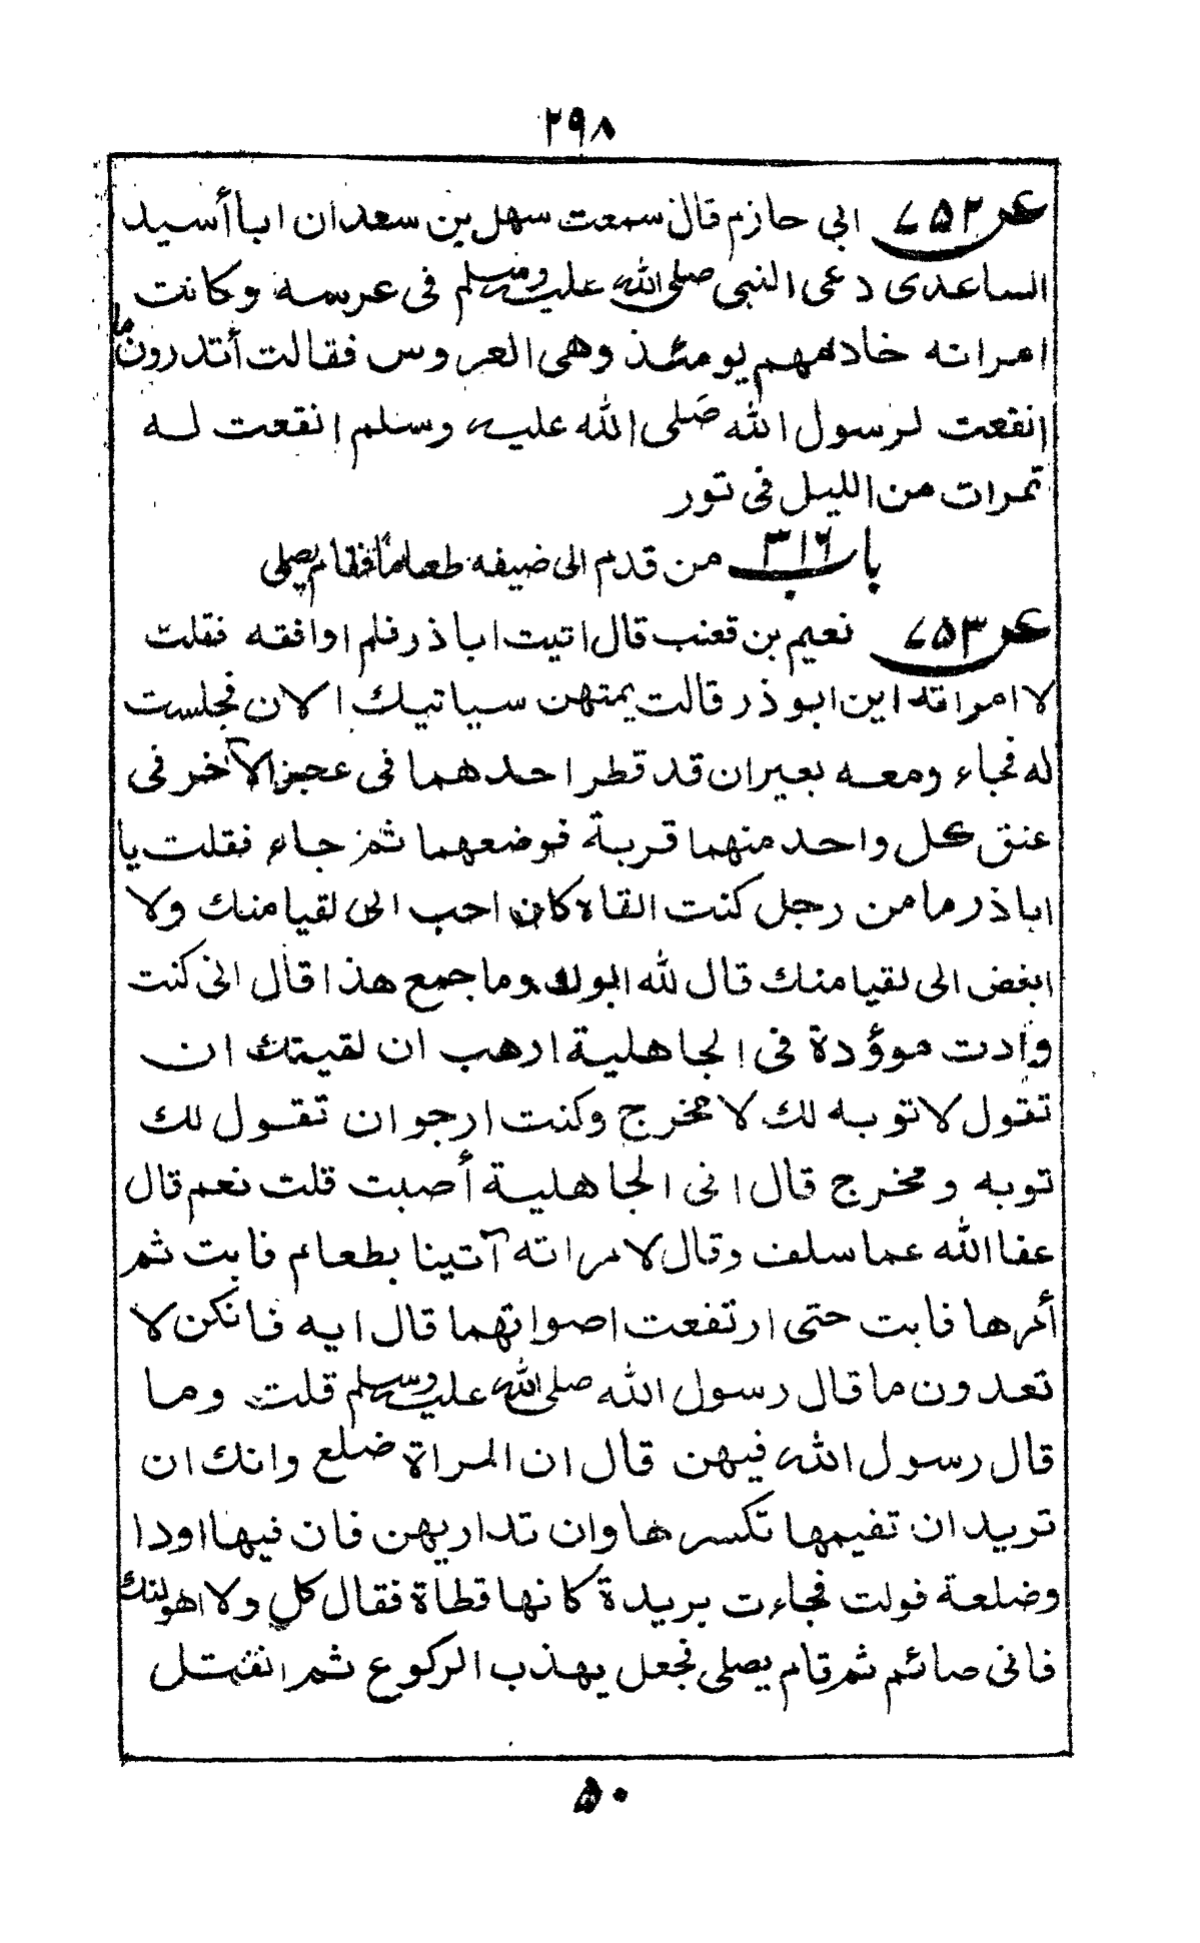 ۲۹۸
عن ۷۵۲ ابي حازم قال سمعت سهل بن سعد ان ابا أسيد
الساعدى دعى النبى صلى الله عليه وسلم فى عرسه وكانت
امراته خادمهم يومئذ وهى العروس فقالت أتدرون ما
انقعت لرسول الله صَلى الله عليه وسلم انقعت له
تمرات من الليل فى تور
باب ۳۱۶ من قدم الى ضيفه طعاما فقام يصلى
عن ۷۵۳ نعيم بن قعنب قال اتيت اباذر فلم اوافقه فقلت
لا امراته اين ابوذر قالت يمتهن سياتيك الان فجلست
له فجاء ومعه بعيران قد قطر احدهما فى عجز الآخر فى
عنق كل واحد منهما قربة فوضعهما ثم جاء فقلت يا
اباذر ما من رجل كنت القاه كان احب الى لقيا منك ولا
ابغض الى لقيا منك قال لله ابوك وما جمع هذا قال انى كنت
وأدت موؤدة فى الجاهلية ارهب ان لقيتك ان
تقول لا توبه لك لا مخرج وكنت ارجو ان تقول لك
توبه ومخرج قال انى الجاهلية أصبت قلت نعم قال
عفا الله عما سلف وقال لامراته آتينا بطعام فابت ثم
أمرها فابت حتى ارتفعت اصواتهما قال ايه فانكن لا
تعدون ما قال رسول الله صلى الله عليه وسلم قلت وما
قال رسول الله فيهن قال ان المراة ضلع وانك ان
تريد ان تقيمها تكسرها وان تداريهن فان فيها اودا
وضلعة فولت فجاءت بريدة كانها قطاة فقال كل ولا اهولنك
فانى صائم ثم قام يصلى فجعل يهذب الركوع ثم انفتل
۵۰